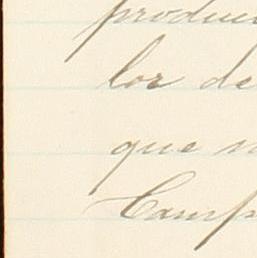 produc
lor de
que n
Camp